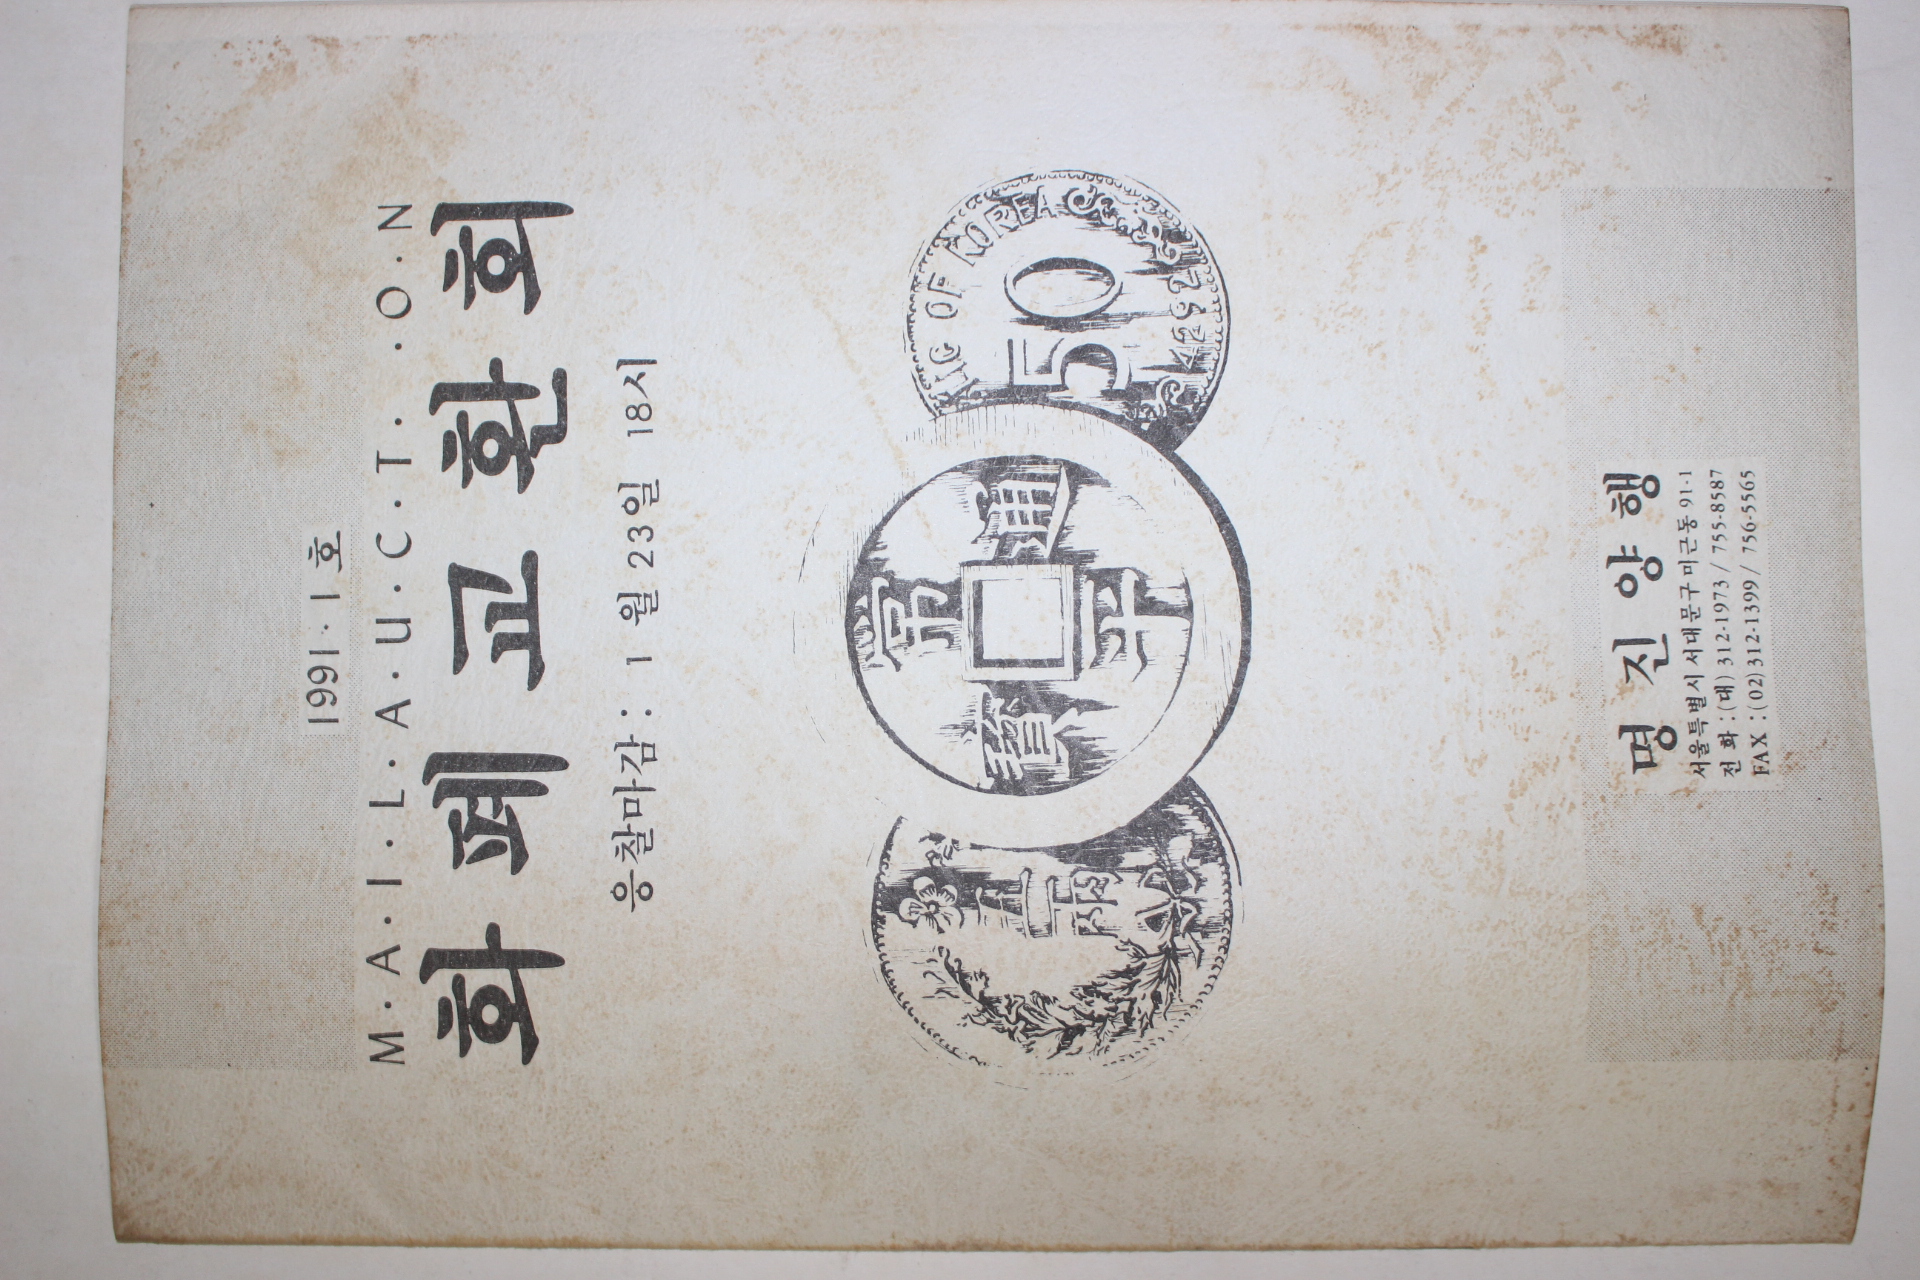 1991·1호
M·A·I·L·A·U·C·T·I·O·N
화폐교환회
응찰마감: 1월 23일 18시
OF KOREA
50
4292
常平通寶
五兩
명진양행
서울특별시 서대문구 미근동 91-1
전 화 : (대) 312-1973 / 755-8587
FAX : (02) 312-1399 / 756-5565